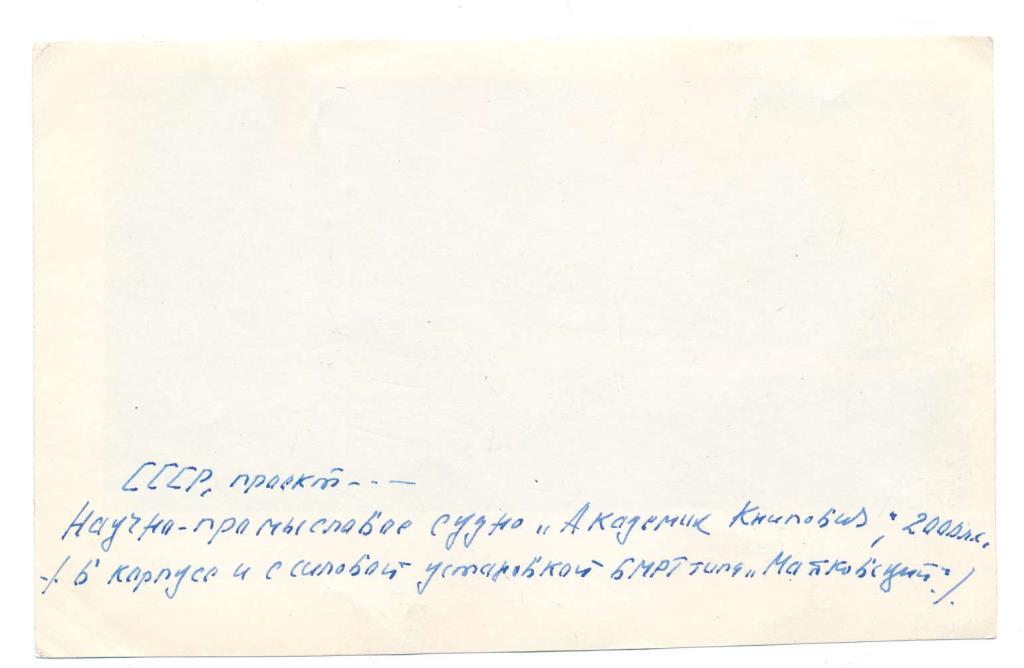 СССР, проект - - -
Научно-промысловое судно „Академик Книпович", 2000л.с.
-/ В корпусе и с силовой установкой БМРТ типа „Маяковский"/.